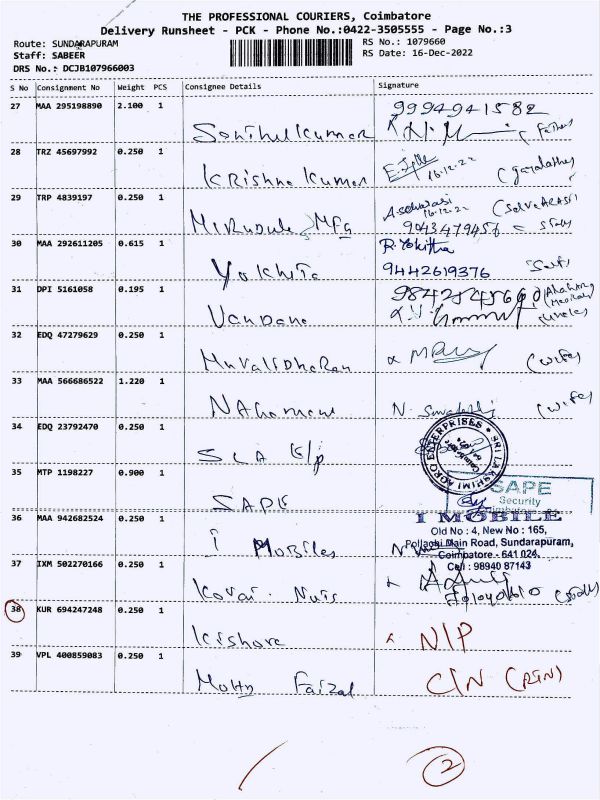 THE PROFESSIONAL COURIERS, Coimbatore
Delivery Runsheet - PCK - Phone No.:0422-3505555 - Page No.:3
Route: SUNDARAPURAM
RS No.: 1079660
Staff: SABEER
RS Date: 16-Dec-2022
DRS No.: DCJB107966003
S No Consignment No Weight PCS Consignee Details Signature
27 MAA 295198890 2.100 1 9994941582
Senthilkumar (Father)
28 TRZ 45697992 0.250 1
Krishna Kumar 16.12.22
29 TRP 4839197 0.250 1 16.12.22
Mirudula Mfg 9043479456
30 MAA 292611205 0.615 1 R. Yokitha
Yokhita 9442619376 Self
31 DPI 5161058 0.195 1
Vandana
32 EDQ 47279629 0.250 1
Muralidharan (wife)
33 MAA 566686522 1.220 1
N. (wife)
34 EDQ 23792470 0.250 1
SRI LAKSHMI AGRO ENTERPRISES
35 MTP 1198227 0.900 1 SAPE
Security
SAPE
36 MAA 942682524 0.250 1 I MOBILE
Old No : 4, New No : 165,
i Mobiles Pollachi Main Road, Sundarapuram,
Coimbatore - 641 024.
37 IXM 502270166 0.250 1 Cell : 98940 87143
Kovai Nuts
38 KUR 694247248 0.250 1
Kishore N/P
39 VPL 400859083 0.250 1
Mohd Faizal C/N (RTN)
2